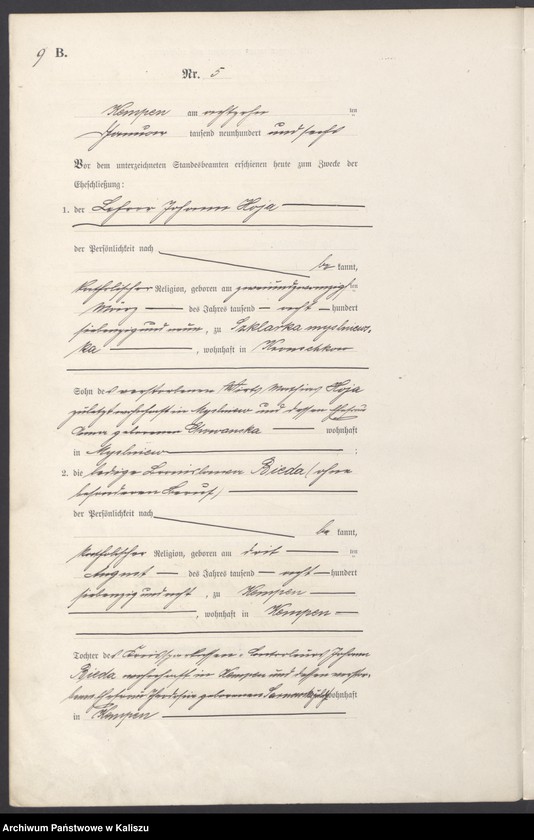 9 B.
Nr. 5
Kempen am achtzehn ten
Januar tausend neunhundert und sechs
Vor dem unterzeichneten Standesbeamten erschienen heute zum Zwecke der
Eheschließung:
1. der Lehrer Johann Hoja
der Persönlichkeit nach
be kannt,
katholischer Religion, geboren am zweiundzwanzigsten
März des Jahres tausend acht hundert
siebenzig und neun, zu Szklarka myslniew-
ka, wohnhaft in
Sohn des verstorbenen Wirts Mathias Hoja
zuletzt wohnhaft in Myslniew und dessen Ehefrau
geborenen wohnhaft
in Myslniew :
2. die ledige Bronislawa Bieda (ohne
besonderen Beruf)
der Persönlichkeit nach
be kannt,
katholischer Religion, geboren am drit ten
August des Jahres tausend acht hundert
siebenzig und acht, zu Kempen
, wohnhaft in Kempen
Tochter des Kreissparkassen- Johann
Bieda wohnhaft in Kempen und dessen verstor-
benen Ehefrau geborenen wohnhaft
in Kempen
Archiwum Państwowe w Kaliszu